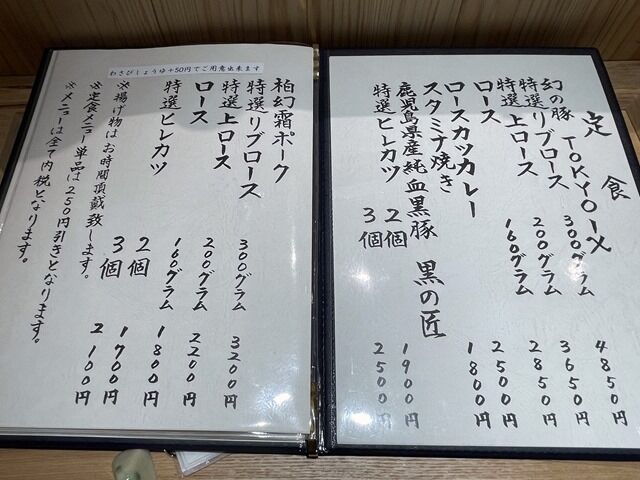 定食
幻の豚 TOKYO-X
特選リブロース 300グラム 4850円
特選上ロース 200グラム 3650円
ロース 160グラム 2850円
ロースカツカレー 2500円
スタミナ焼き 1800円
鹿児島県産純血黒豚 黒の匠
特選ヒレカツ 2個 1900円
3個 2500円
わさびしょうゆ+50円でご用意出来ます
柏幻霜ポーク
特選リブロース 300グラム 3200円
特選上ロース 200グラム 2200円
ロース 160グラム 1800円
特選ヒレカツ 2個 1700円
3個 2100円
※揚げ物はお時間頂戴致します。
※定食メニュー単品は250円引きとなります。
※メニューは全て内税となります。